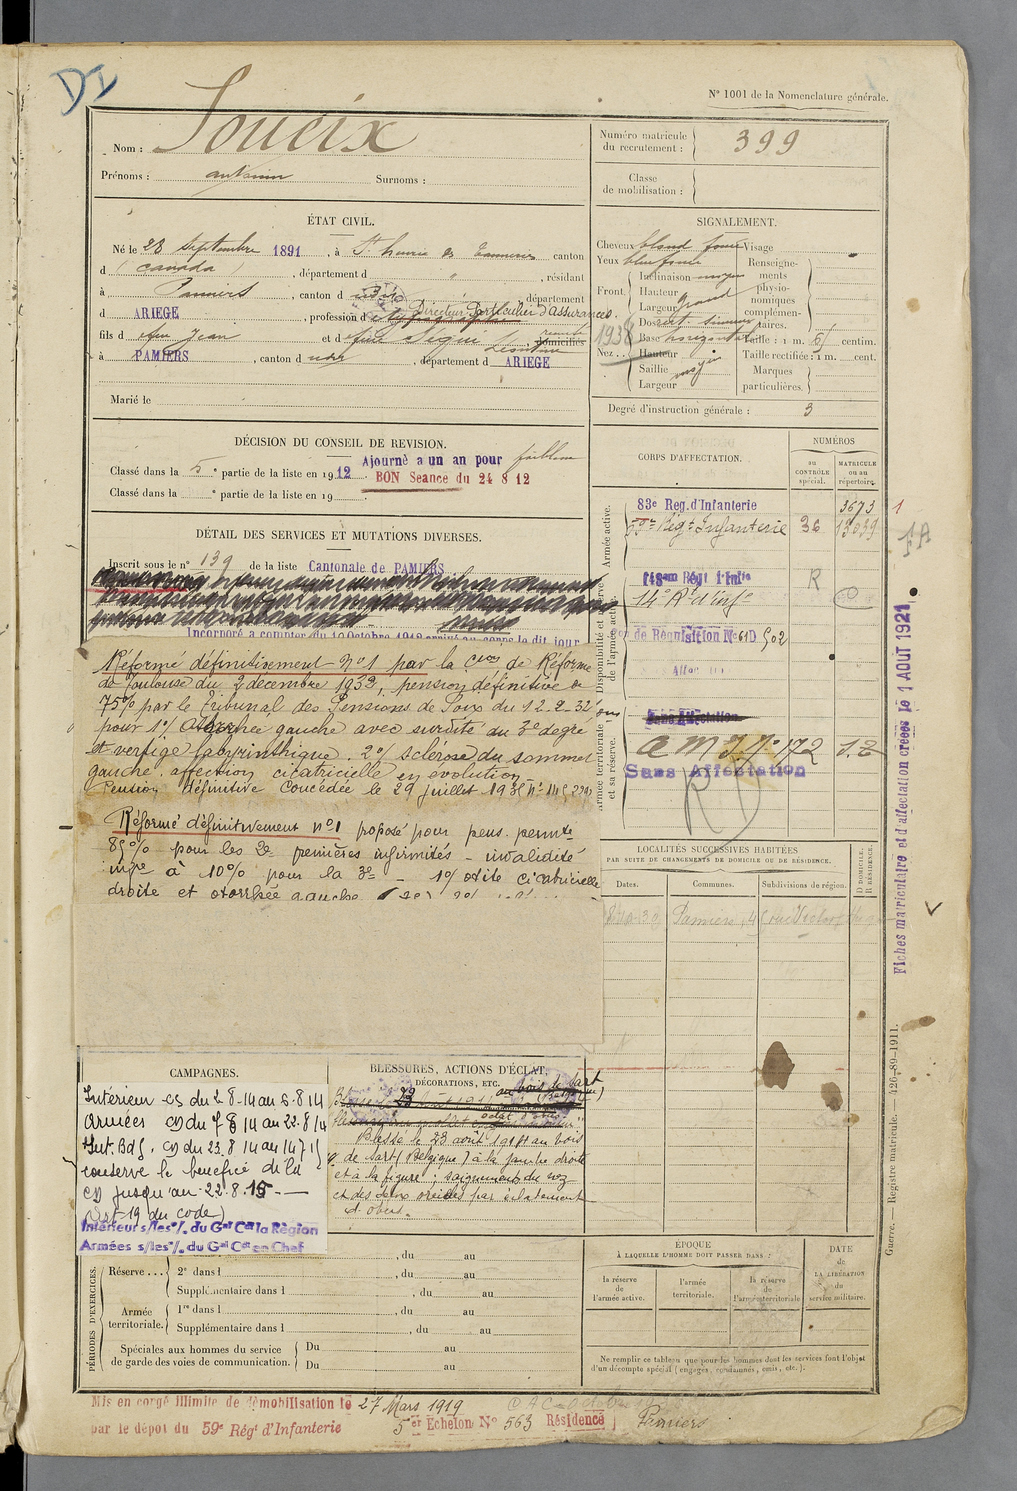 DI
N° 1001 de la Nomenclature générale.
Nom : Soueix
Prénoms : antonin Surnoms :
Numéro matricule du recrutement : 399
Classe de mobilisation :
ÉTAT CIVIL.
Né le 28 septembre 1891, à St henri des Tanneries canton
d (Canada), département d " , résidant
à Pamiers, canton d udit, département
Directeur Particulier d'Assurances.
d ARIEGE, profession d typographe
fils d feu Jean et d feue Séguí Léontine domiciliés
à PAMIERS, canton d udit, département d ARIEGE
Marié le
SIGNALEMENT.
Cheveux blond foncé Visage
Yeux bleu foncé Renseignements physionomiques complémentaires.
Front. Inclinaison moyen
Hauteur
Largeur grand
1938
Nez... Dos rect. sinueux
Base horizontal Taille : 1 m. 61 centim.
Hauteur Taille rectifiée : 1 m. cent.
Saillie moyen Marques
Largeur particulières.
Degré d'instruction générale : 3
DÉCISION DU CONSEIL DE REVISION.
Classé dans la 5e partie de la liste en 1912 Ajourné a un an pour faiblesse
BON Séance du 24 8 12
Classé dans la e partie de la liste en 19
DÉTAIL DES SERVICES ET MUTATIONS DIVERSES.
Inscrit sous le n° 139 de la liste Cantonale de PAMIERS
Incorporé a compter du 10 Octobre 1912 arrivé au corps le dit jour
Réformé définitivement n°1 par la Cion de Réforme
de Toulouse du 2 décembre 1932, pension définitive de
75% par le Tribunal des Pensions de Foix du 12-2-32
pour 1°/ otorrhée gauche avec surdité au 3e degré
et vertige labyrinthique. 2°/ sclérose du sommet
gauche. affection cicatricielle en évolution_
Pension définitive concédée le 29 juillet 193
Réformé définitivement n°1 proposé pour pens. permte
85% pour les 2e premières infirmités - invalidité
infre à 10% pour la 3e - 1°/ otite cicatricielle
droite et otorrhée gauche
CORPS D'AFFECTATION.
NUMÉROS
au CONTRÔLE spécial.
MATRICULE ou au répertoire.
Armée active.
83e Reg. d'Infanterie 3673
59e Régt Infanterie 36 13039
Disponibilité et réserve de l'armée active.
14e R d'infie
R
de Réquisition N°61D 502
Armée territoriale et sa réserve.
Sans Affectation
a m J N° 172 S.Z
Sans Affectation
1
FA
Fiches matriculaire et d'affectation créées le 1 AOUT 1921
LOCALITÉS SUCCESSIVES HABITÉES
PAR SUITE DE CHANGEMENTS DE DOMICILE OU DE RÉSIDENCE.
Dates. Communes. Subdivisions de région. D DOMICILE. R RÉSIDENCE.
Pamiers, 4 rue Victor Hugo
CAMPAGNES.
Intérieur CS du 2-8-14 au 6-8 14
Armées CD du 7 8 14 au 22.8 14
Int. Bd. CD du 23.8 14 au 14 7 15
conserve le bénéfice de la
CD jusqu'au 22.8.15 -
(Art 19 du code)
Intérieur s/les o/. du Gal Cdt la Région
Armées s/les o/. du Gal Cdt en Chef
BLESSURES, ACTIONS D'ÉCLAT,
DÉCORATIONS, ETC.
Blessé le 23 août 1914 au bois
de Sart (Belgique) à la jambe droite
et à la figure ; saignement du nez
et des deux oreilles par éclatement
d'obus.
PÉRIODES D'EXERCICES.
, du au
Réserve... 2e dans l , du au
Supplémentaire dans l , du au
Armée territoriale. 1re dans l , du au
Supplémentaire dans l , du au
Spéciales aux hommes du service de garde des voies de communication. Du au
Du au
ÉPOQUE
À LAQUELLE L'HOMME DOIT PASSER DANS :
la réserve de l'armée active.
l'armée territoriale.
la réserve de l'armée territoriale
DATE
de
LA LIBÉRATION
du
service militaire.
Ne remplir ce tableau que pour les hommes dont les services font l'objet
d'un décompte spécial (engagés, condamnés, omis, etc.).
Guerre. — Registre matricule. 426-89-1911.
Mis en congé illimité de démobilisation le 27 Mars 1919
par le dépot du 59e Régt d'Infanterie 5er Echelon N° 563 Résidence Pamiers